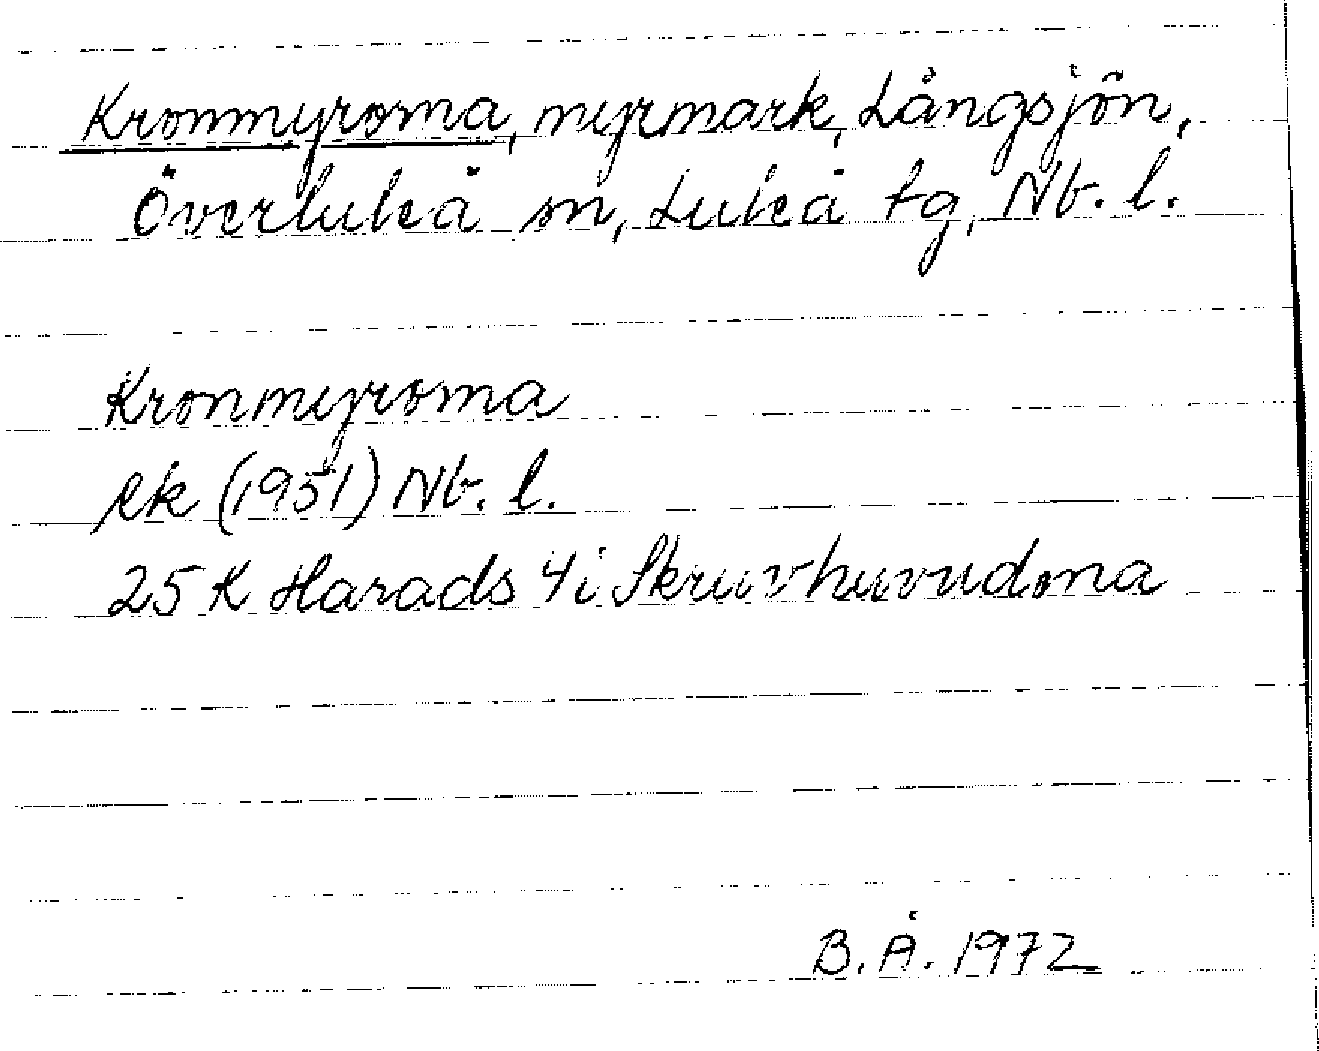 Kronmyrorna, myrmark, Långsjön,
Överluleå sn, Luleå tg, Nb. l.
Kronmyrorna
ek (1951) Nb. l.
25 K Harads 4i Skruvhuvudena
B. Å. 1972